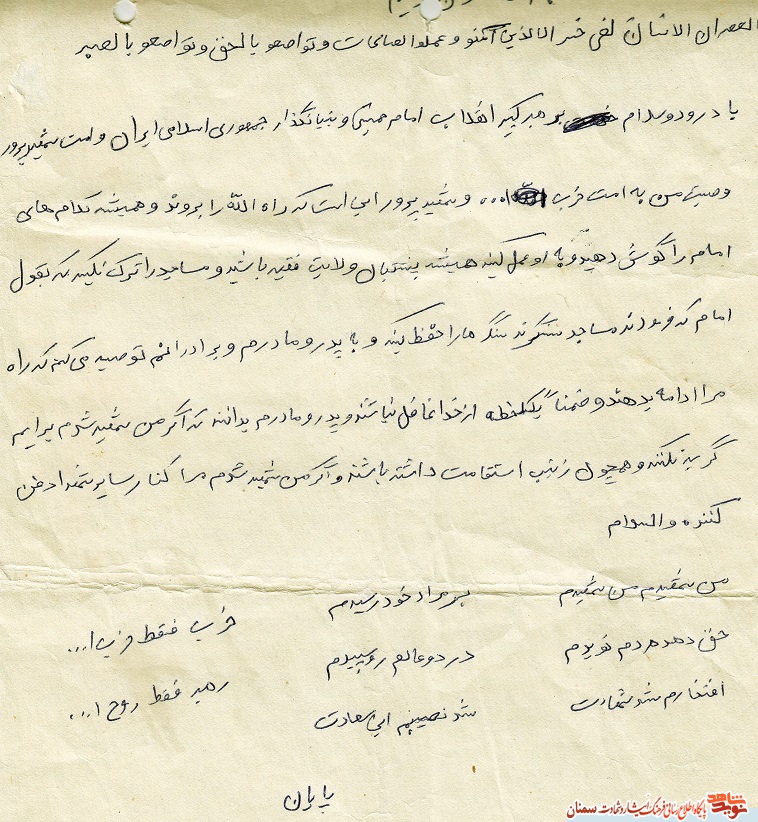 العصران الانسان لفی خسر الا الذین آمنو و عملوا الصالحات و تواصعو بالحق و تواصعو بالصبر
با درود و سلام بر رهبر کبیر انقلاب امام خمینی و بنیانگذار جمهوری اسلامی ایران و امت شهید پرور
وصیت من به امت حزب ا... و شهید پرور این است که راه الله را بروند و همیشه کلام های
امام را گوش دهید و به او عمل کنید همیشه پشتیبان ولایت فقیه باشید و مساجد را ترک نکنید که بقول
امام که فرمودند مساجد سنگرند سنگر ها را حفظ کنید و به پدر و مادرم و برادرانم توصیه می کنم که راه
مرا ادامه بدهند و ضمناً یک لحظه از خدا غافل نباشند و پدر و مادرم بدانند که اگر من شهید شدم برایم
گریه نکنند و همچون زینب استقامت داشته باشند و اگر من شهید شدم مرا کنار سایر شهدا دفن
کننده والسلام
من شهیدم من شهیدم بر مراد خود رسیدم
حق دهد هر دم نویدم در دو عالم رو سپیدم
افتخارم شد شهادت شد نصیبم این سعادت
حزب فقط حزب ا...
رهبر فقط روح ا...
پایان
نوید شاهد
پایگاه اطلاع رسانی فرهنگ ایثار و شهادت سمنان